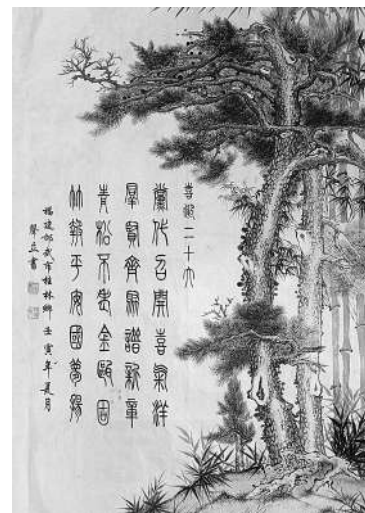 喜迎二十大
黨代召開喜氣洋
羣賢齊聚譜新章
青松不老金甌固
竹報平安國夢揚
福建邵武市桂林鄉壬寅年夏月
聲立書